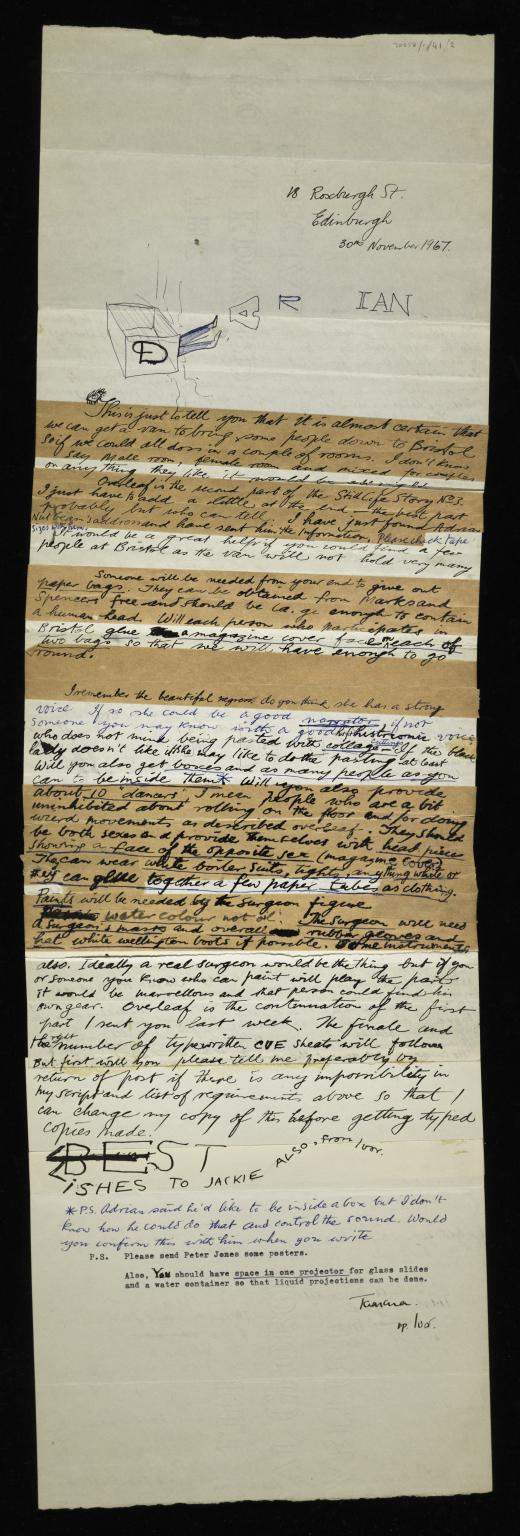 18 Roxburgh St.
Edinburgh
30th November 1967.
D E A R IAN
This is just to tell you that it is almost certain that
we can get a van to bring some people down to Bristol
so if we could all doss in a couple of rooms. I don't know
say male room, female room and mixed for couples
on anything they like it would be
Overleaf is the second part of the Still Life Story No 3
I just have to add a little at the end — the best part
probably but who can tell. I have just found Adrian
address and have sent him the information, Please check tape
It would be a great help if you could find a few
people at Bristol as the van will not hold very many
Someone will be needed from your end to give out
paper bags. They can be obtained from Marks and
Spencers free and should be large enough to contain
a human head. Will each person who participates in
Bristol glue a magazine cover face each of
two bags so that we will have enough to go
round.
I remember the beautiful negress do you think she has a strong
voice If so she could be a good narrator, if not
someone you may know with a good histrionic voice
who does not mind being pasted with collage. If the black
lady doesn't like it she may like to do the pasting at least
Will you also get boxes and as many people as you
can to be inside them* Will you also provide
about 10 'dancers' I mean people who are a bit
uninhibited about rolling on the floor and for doing
weird movements as described overleaf. They should
be both sexes and provide themselves with head pieces
showing a face of the opposite sex (magazine cover)
They can wear white boiler suits, tights, anything white or
they can glue together a few paper tubes as clothing.
Paints will be needed by the surgeon figure
water colour not oil. The surgeon will need
a surgeon's mask and overall rubber gloves and
hat white wellington boots if possible. Some instruments
also. Ideally a real surgeon would be the thing but if you
or someone you know who can paint will play the part
it would be marvellous and that person could find his
own gear. Overleaf is the continuation of the first
part I sent you last week. The finale and
the number of typewritten CUE sheets will follow
But first will you please tell me preferably by
return of post if there is any impossibility in
my script and list of requirements above so that I
can change my copy of this before getting typed
copies made.
BEST
WISHES TO JACKIE ALSO, from Ivor.
*P.S. Adrian said he'd like to be inside a box but I don't
know how he could do that and control the sound. Would
you confirm this with him when you write
P.S. Please send Peter Jones some posters.
Also, You should have space in one projector for glass slides
and a water container so that liquid projections can be done.
pp. Ivor.